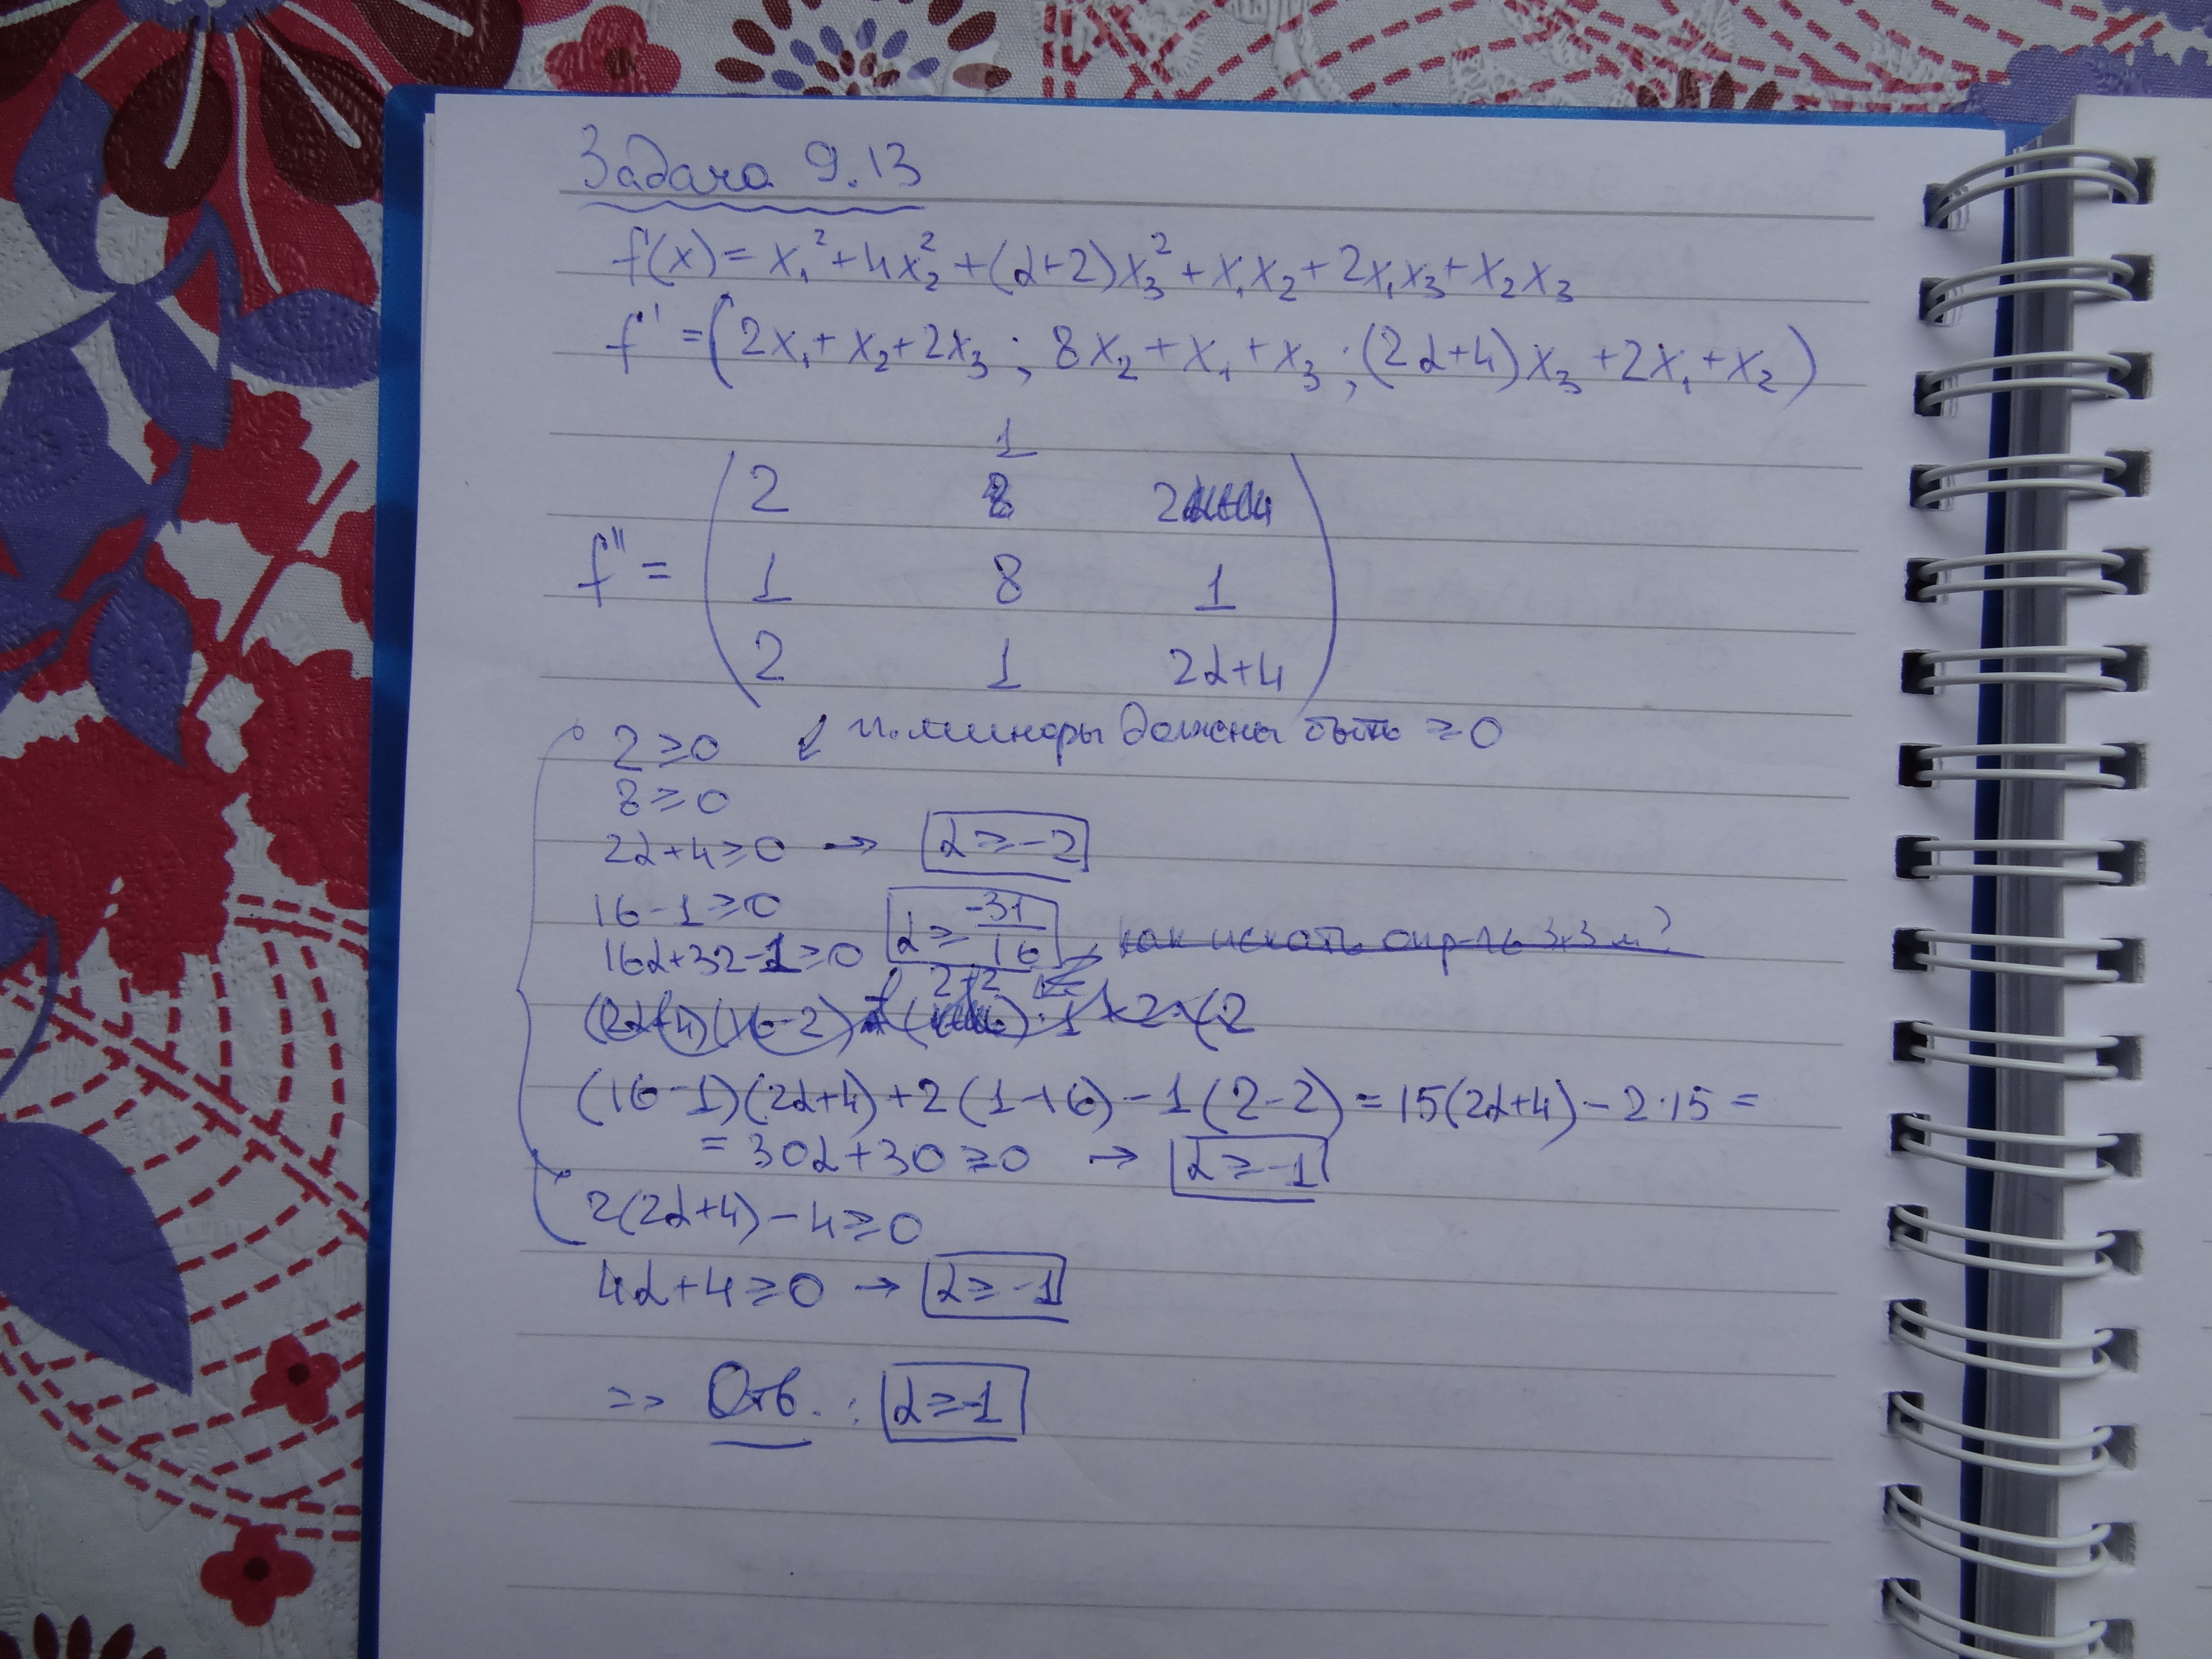 Задача 9.13
f(x) = x₁² + 4x₂² + (α+2)x₃² + x₁x₂ + 2x₁x₃ + x₂x₃
f' = (2x₁ + x₂ + 2x₃ ; 8x₂ + x₁ + x₃ ; (2α+4)x₃ + 2x₁ + x₂)
1
2 2
f'' = 1 8 1
2 1 2α+4
2 ≥ 0 ↙ гл. миноры должны быть ≥ 0
8 ≥ 0
2α+4 ≥ 0 → α ≥ -2
16-1 ≥ 0
16α+32-1 ≥ 0 α ≥ -31/16 ← как искать опр-ль 3x3 м?
(2α+4)(16-2)
(16-1)(2α+4) + 2(1-16) - 1(2-2) = 15(2α+4) - 2·15 =
= 30α+30 ≥ 0 → α ≥ -1
2(2α+4) - 4 ≥ 0
4α+4 ≥ 0 → α ≥ -1
=> Отв. : α ≥ -1